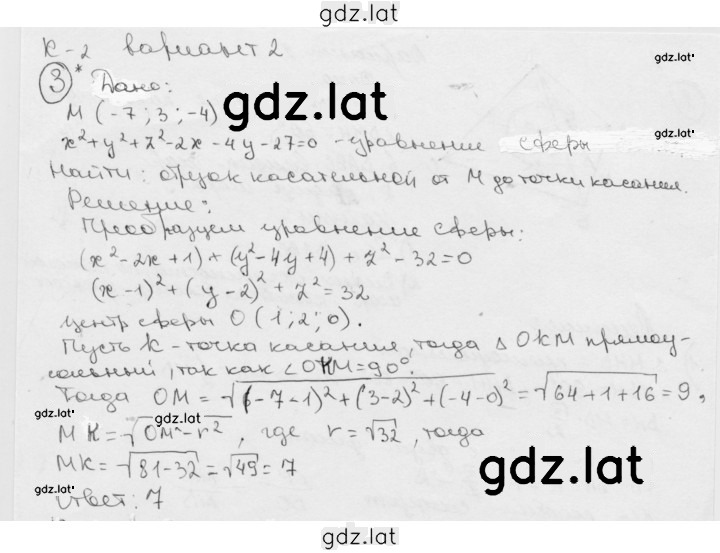 gdz.lat
К-2 вариант 2
gdz.lat
3* Дано:
M (-7; 3; -4)
gdz.lat
x²+y²+z²-2x-4y-27=0 - уравнение сферы
gdz.lat
Найти: отрезок касательной от M до точки касания.
Решение:
Преобразуем уравнение сферы:
(x²-2x+1)+(y²-4y+4)+z²-32=0
(x-1)²+(y-2)²+z²=32
центр сферы O(1;2;0).
Пусть K - точка касания, тогда Δ OKM прямоу-
гольный, так как ∠OKM=90°.
Тогда OM=√(-7-1)²+(3-2)²+(-4-0)²=√64+1+16=9,
gdz.lat
MK=√OM²-r², где r=√32, тогда
gdz.lat
MK=√81-32=√49=7
gdz.lat
gdz.lat
Ответ: 7
gdz.lat